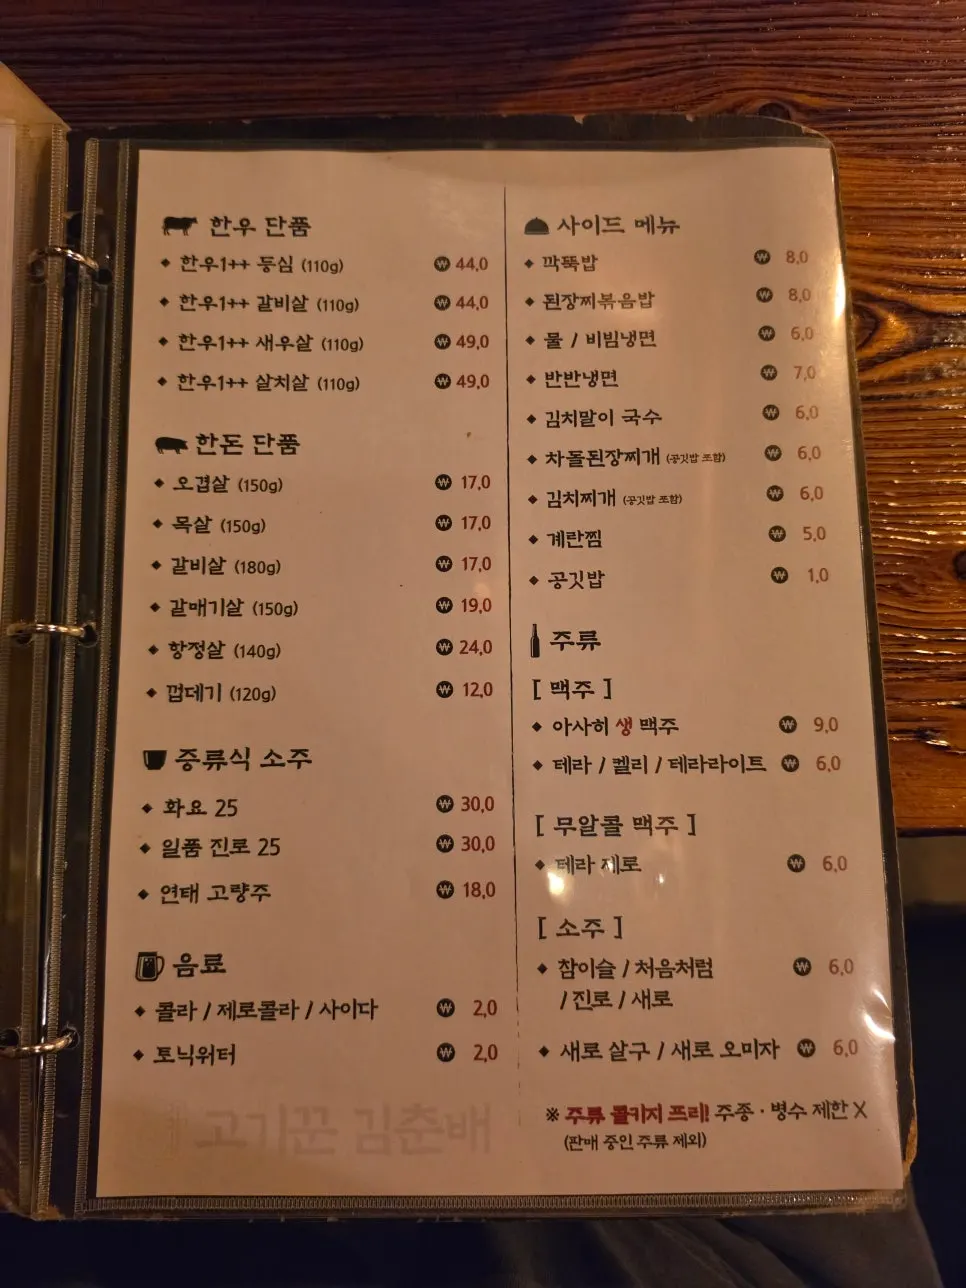 한우 단품
◆ 한우1++ 등심 (110g) ₩ 44,0
◆ 한우1++ 갈비살 (110g) ₩ 44,0
◆ 한우1++ 새우살 (110g) ₩ 49,0
◆ 한우1++ 살치살 (110g) ₩ 49,0
한돈 단품
◆ 오겹살 (150g) ₩ 17,0
◆ 목살 (150g) ₩ 17,0
◆ 갈비살 (180g) ₩ 17,0
◆ 갈매기살 (150g) ₩ 19,0
◆ 항정살 (140g) ₩ 24,0
◆ 껍데기 (120g) ₩ 12,0
증류식 소주
◆ 화요 25 ₩ 30,0
◆ 일품 진로 25 ₩ 30,0
◆ 연태 고량주 ₩ 18,0
음료
◆ 콜라 / 제로콜라 / 사이다 ₩ 2,0
◆ 토닉워터 ₩ 2,0
고기꾼 김춘배
사이드 메뉴
◆ 깍뚝밥 ₩ 8,0
◆ 된장찌볶음밥 ₩ 8,0
◆ 물 / 비빔냉면 ₩ 6,0
◆ 반반냉면 ₩ 7,0
◆ 김치말이 국수 ₩ 6,0
◆ 차돌된장찌개 (공깃밥 포함) ₩ 6,0
◆ 김치찌개 (공깃밥 포함) ₩ 6,0
◆ 계란찜 ₩ 5,0
◆ 공깃밥 ₩ 1,0
주류
[ 맥주 ]
◆ 아사히 생 맥주 ₩ 9,0
◆ 테라 / 켈리 / 테라라이트 ₩ 6,0
[ 무알콜 맥주 ]
◆ 테라 제로 ₩ 6,0
[ 소주 ]
◆ 참이슬 / 처음처럼 ₩ 6,0
/ 진로 / 새로
◆ 새로 살구 / 새로 오미자 ₩ 6,0
※ 주류 콜키지 프리! 주종 · 병수 제한 X
(판매 중인 주류 제외)